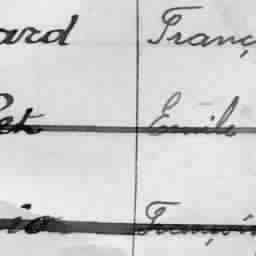 ard Franç
et Emile
io François